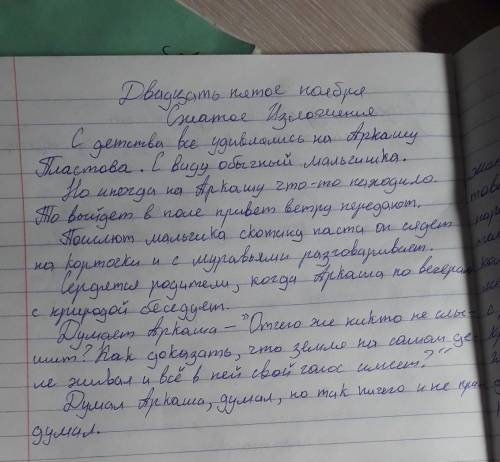 Двадцать пятое ноября
Сжатое Изложение
С детства все удивлялись на Аркашу
Пластова. С виду обычный мальчишка.
Но иногда на Аркашу что-то находило.
То выйдет в поле привет ветру передают.
Пошлют мальчика скотину пасти он сядет
на корточки и с муравьями разговаривает.
Сердятся родители, когда Аркаша по вечерам
с природой беседует.
Думает Аркаша – "Отчего же никто не слы-
шит? Как доказать, что земля на самом де-
ле живая и всё в ней свой голос имеет?"
Думал Аркаша, думал, но так ничего и не при-
думал.